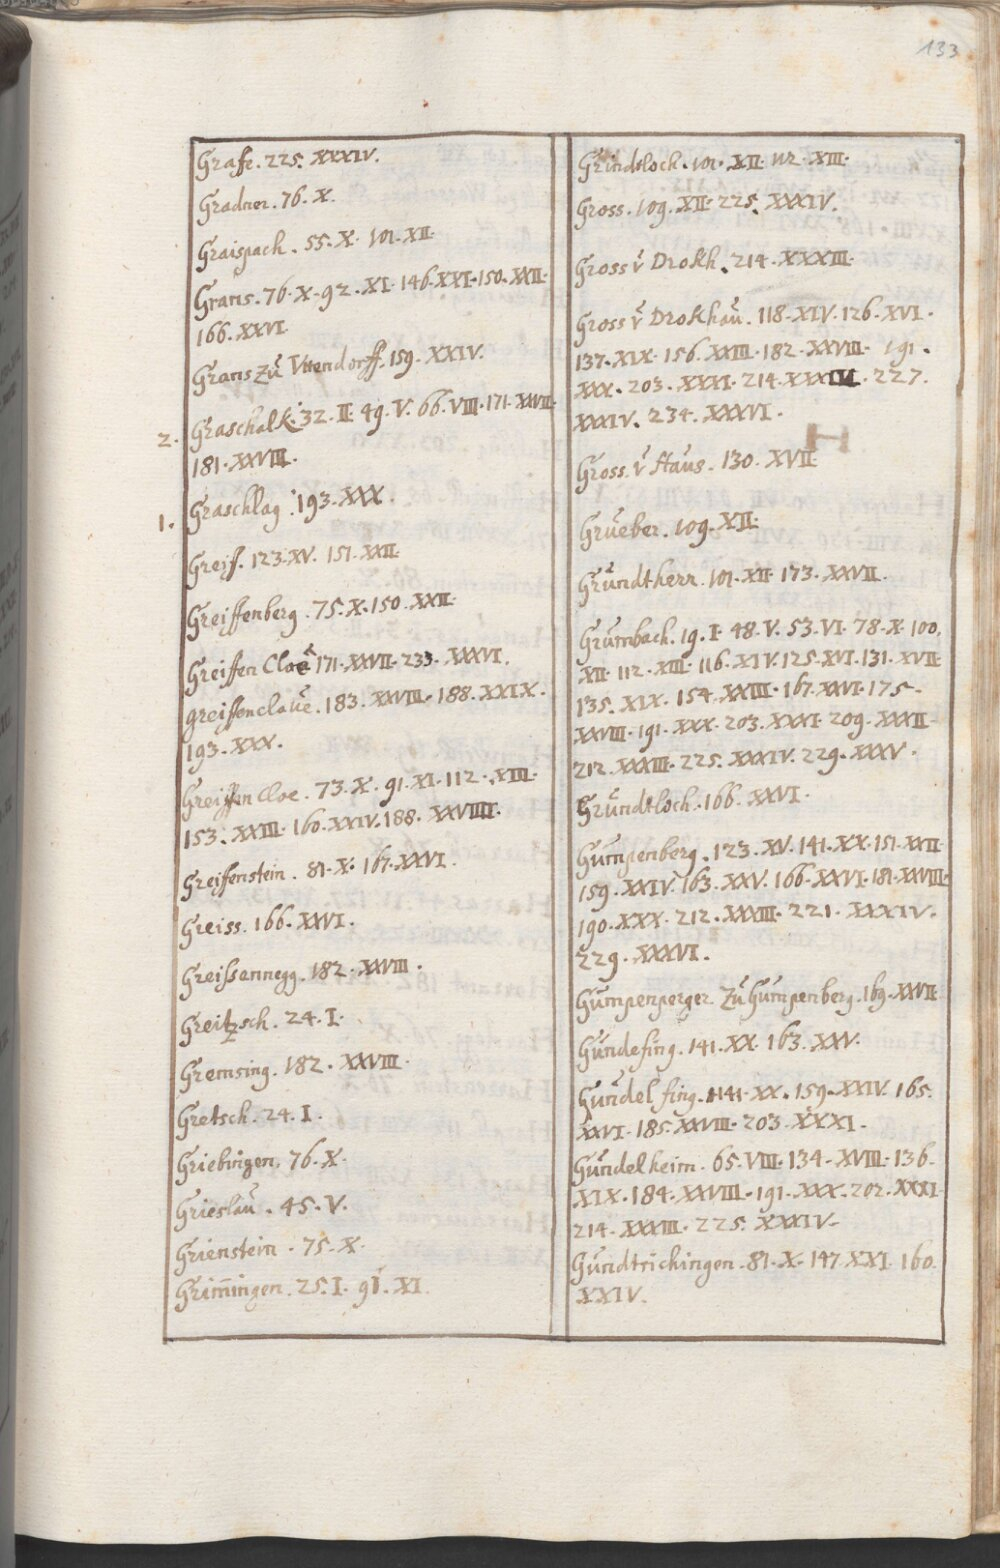 133
Grafe. 225. XXXIV.
Gradner. 76. X.
Graispach. 55. X. 101. XII.
Grans. 76. X. 92. XI. 146. XXI. 150. XXII.
166. XXVI.
Grans zŭ Vttendorff. 159. XXIV.
2. Graschalk. 32. II. 49. V. 66. VIII. 171. XXVII.
181. XXVIII.
1. Graschlag. 193. XXX.
Greif. 123. XV. 151. XXII.
Greiffenberg. 75. X. 150. XXII.
Greiffen Cloe 171. XXVII. 233. XXXVI.
greiffenclaŭe. 183. XXVIII. 188. XXIX.
193. XXX.
Greiffen Cloe. 73. X. 91. XI. 112. XIII.
153. XXIII. 160. XXIV. 188. XXVIIII.
Greifenstein. 81. X. 167. XXVI.
Greiss. 166. XXVI.
Greissennegg. 182. XXVIII.
Greitzsch. 24. I.
Gremsing. 182. XXVIII.
Gretsch. 24. I.
Griebingen. 76. X.
Grieslaŭ. 45. V.
Grienstein. 75. X.
Grim̄ingen. 25. I. 91. XI.
Grindtloch. 101. XII. 112. XIII.
Gross. 109. XII. 225. XXXIV.
Gross v̆ Drokh. 214. XXXIII.
Gross v̆ Drokhaŭ. 118. XIV. 126. XVI.
137. XIX. 156. XXIII. 182. XXVIII. 191.
XXX. 203. XXXI. 214. XXXIII. 227.
XXXIV. 234. XXXVI.
Gross. v̆ Haŭs. 130. XVII
Grŭeber. 109. XII.
Grŭndtherr. 101. XII. 173. XXVII.
Grŭmbach. 19. I. 48. V. 53. VI. 78. X. 100.
XII. 112. XIII. 116. XIV. 125. XVI. 131. XVII.
135. XIX. 154. XXIII. 167. XXVI. 175.
XXVIII. 191. XXX. 203. XXXI. 209. XXXII.
212. XXXIII. 225. XXXIV. 229. XXXV.
Grŭndtloch. 166. XXVI.
Gŭmpenberg. 123. XV. 141. XX. 151. XXII.
159. XXIV. 163. XXV. 166. XXVI. 181. XXVIII.
190. XXX. 212. XXXIII. 221. XXXIV.
229. XXXVI.
Gŭmpenperger Zŭ Gŭmpenberg. 169. XXVII
Gŭndefing. 141. XX. 163. XXV.
Gŭndelfing. 141. XX. 159. XXIV. 165.
XXVI. 185. XXVIII. 203. XXXI.
Gŭndelheim. 65. VIII. 134. XVIII. 136.
XIX. 184. XXVIII. 191. XXX. 202. XXXI.
214. XXXIII. 225. XXXIV.
Gŭndtrichingen. 81. X. 147. XXI. 160.
XXIV.